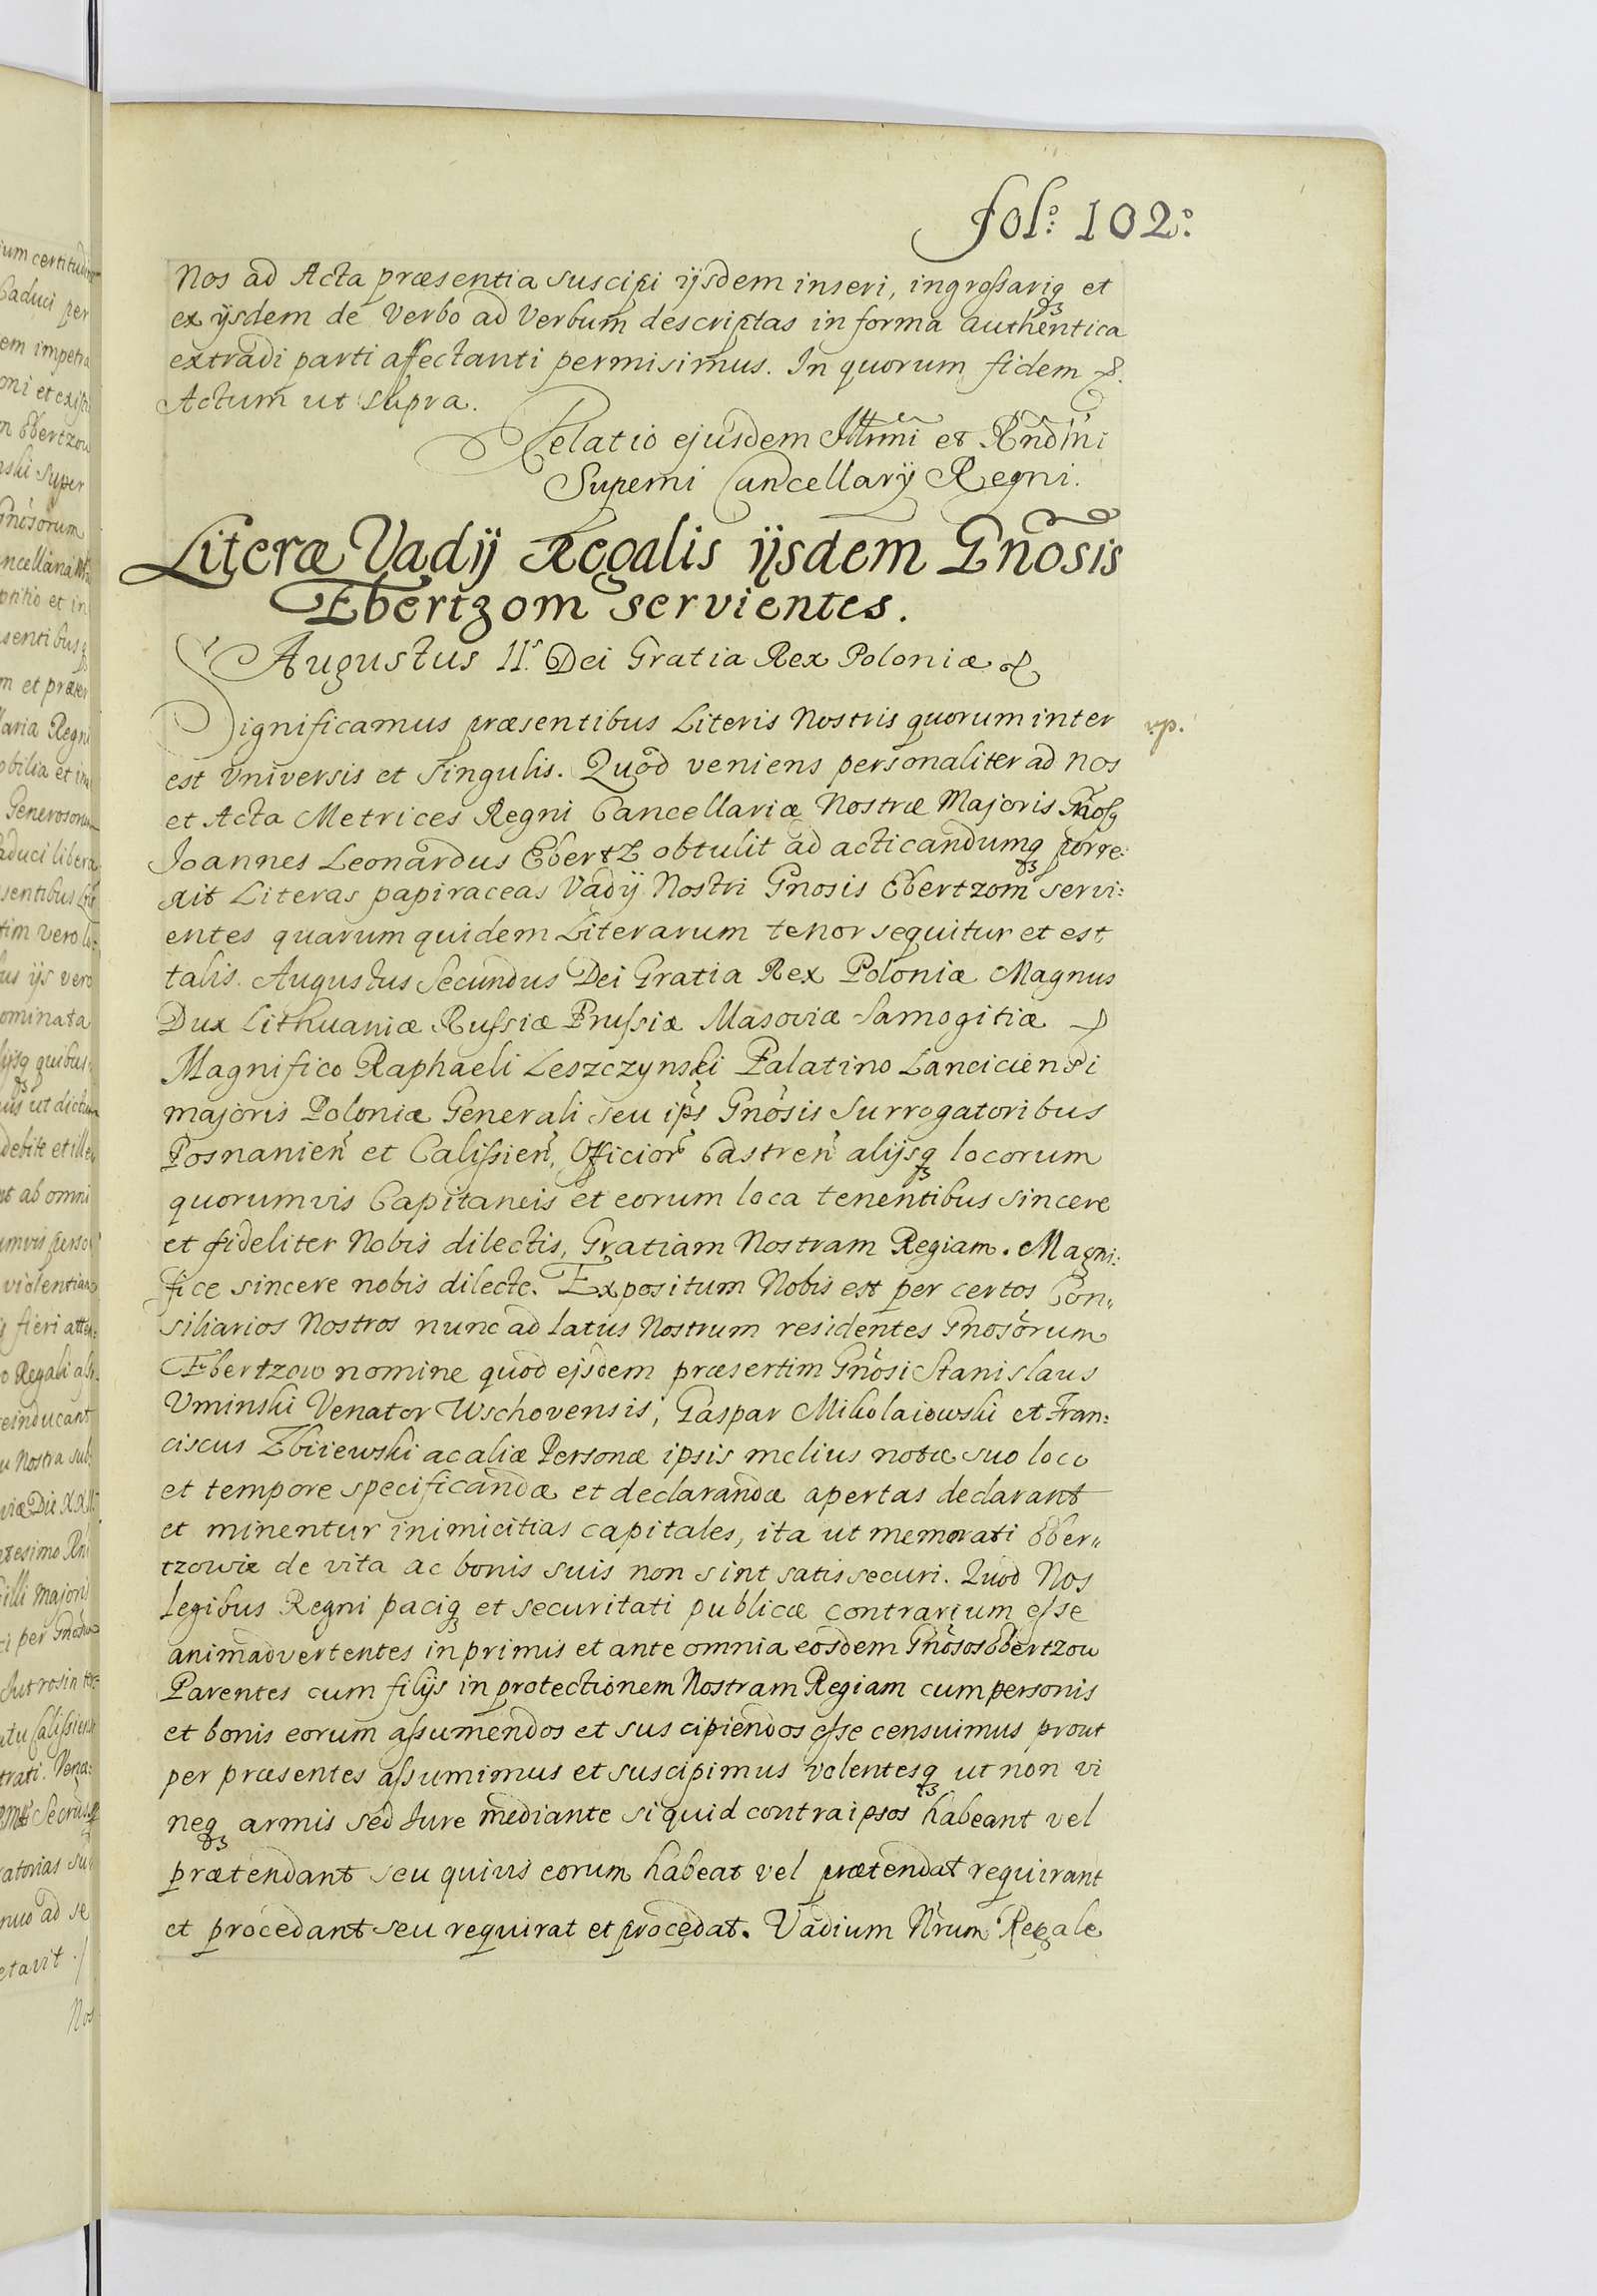 fol: 102:
Nos ad Acta præsentia suscipi ijsdem inseri, ingrossariq3 et
ex ijsdem de Verbo ad Verbum descriptas in forma authentica
extradi parti affectanti permisimus. In quorum fidem &.
Actum ut supra.
Relatio ejusdem Illmi et Rndmi
Supremi Cancellarij Regni.
Literæ Vadij Regalis ijsdem Gnosis
Ebertzom servientes.
Augustus IIs. Dei Gratia Rex Poloniæ &
Significamus præsentibus Literis Nostris quorum inter
rp.
est Vniversis et Singulis. Quod veniens personaliter ad Nos
et Acta Metrices Regni Cancellariæ Nostræ Majoris Gnosq
Joannes Leonardus Ebertz obtulit ad acticandumq3 porre:
xit Literas papiraceas Vadij Nostri Gnosis Ebertzom servi:
entes quarum quidem Literarum tenor sequitur et est
talis. Augustus Secundus Dei Gratia Rex Poloniæ Magnus
Dux Lithuaniæ Russiæ Prussiæ Masoviæ Samogitiæ &
Magnifico Raphaeli Leszczynski Palatino Lanciciensi
majoris Poloniæ Generali seu ips Gnosis Surrogatoribus
Posnanien et Calissien, Officior Castren alijsq3 locorum
quorumvis Capitaneis et eorum loca tenentibus sincere
et fideliter Nobis dilectis, Gratiam Nostram Regiam. Magni:
fice sincere nobis dilecte. Expositum Nobis est per certos Con,,
siliarios Nostros nunc ad latus Nostrum residentes Gnosorum
Ebertzow nomine quod ejsdem præsertim Gnosi Stanislaus
Uminski Venator Wschovensis, Gaspar Mikolaiowski et Fran:
ciscus Zbiiewski ac aliæ Personæ ipsis melius notæ suo loco
et tempore specificandæ et declarandæ apertas declarant
et minentur inimicitias capitales, ita ut memorati Eber,,
tzowie de vita ac bonis suis non sint satis securi. Quod Nos
Legibus Regni paciq3 et securitati publicæ contrarium esse
animadvertentes inprimis et ante omnia eosdem Gnosos Ebertzow
Parentes cum filijs in protectionem Nostram Regiam cum personis
et bonis eorum assumendos et suscipiendos esse censuimus prout
per præsentes assumimus et suscipimus volentesq3 ut non vi
neq3 armis sed Jure mediante si quid contra ipsos habeant vel
prætendant seu quivis eorum habeat vel prætendat requirant
et procedant seu requirat et procedat. Vadium Nrum Regale